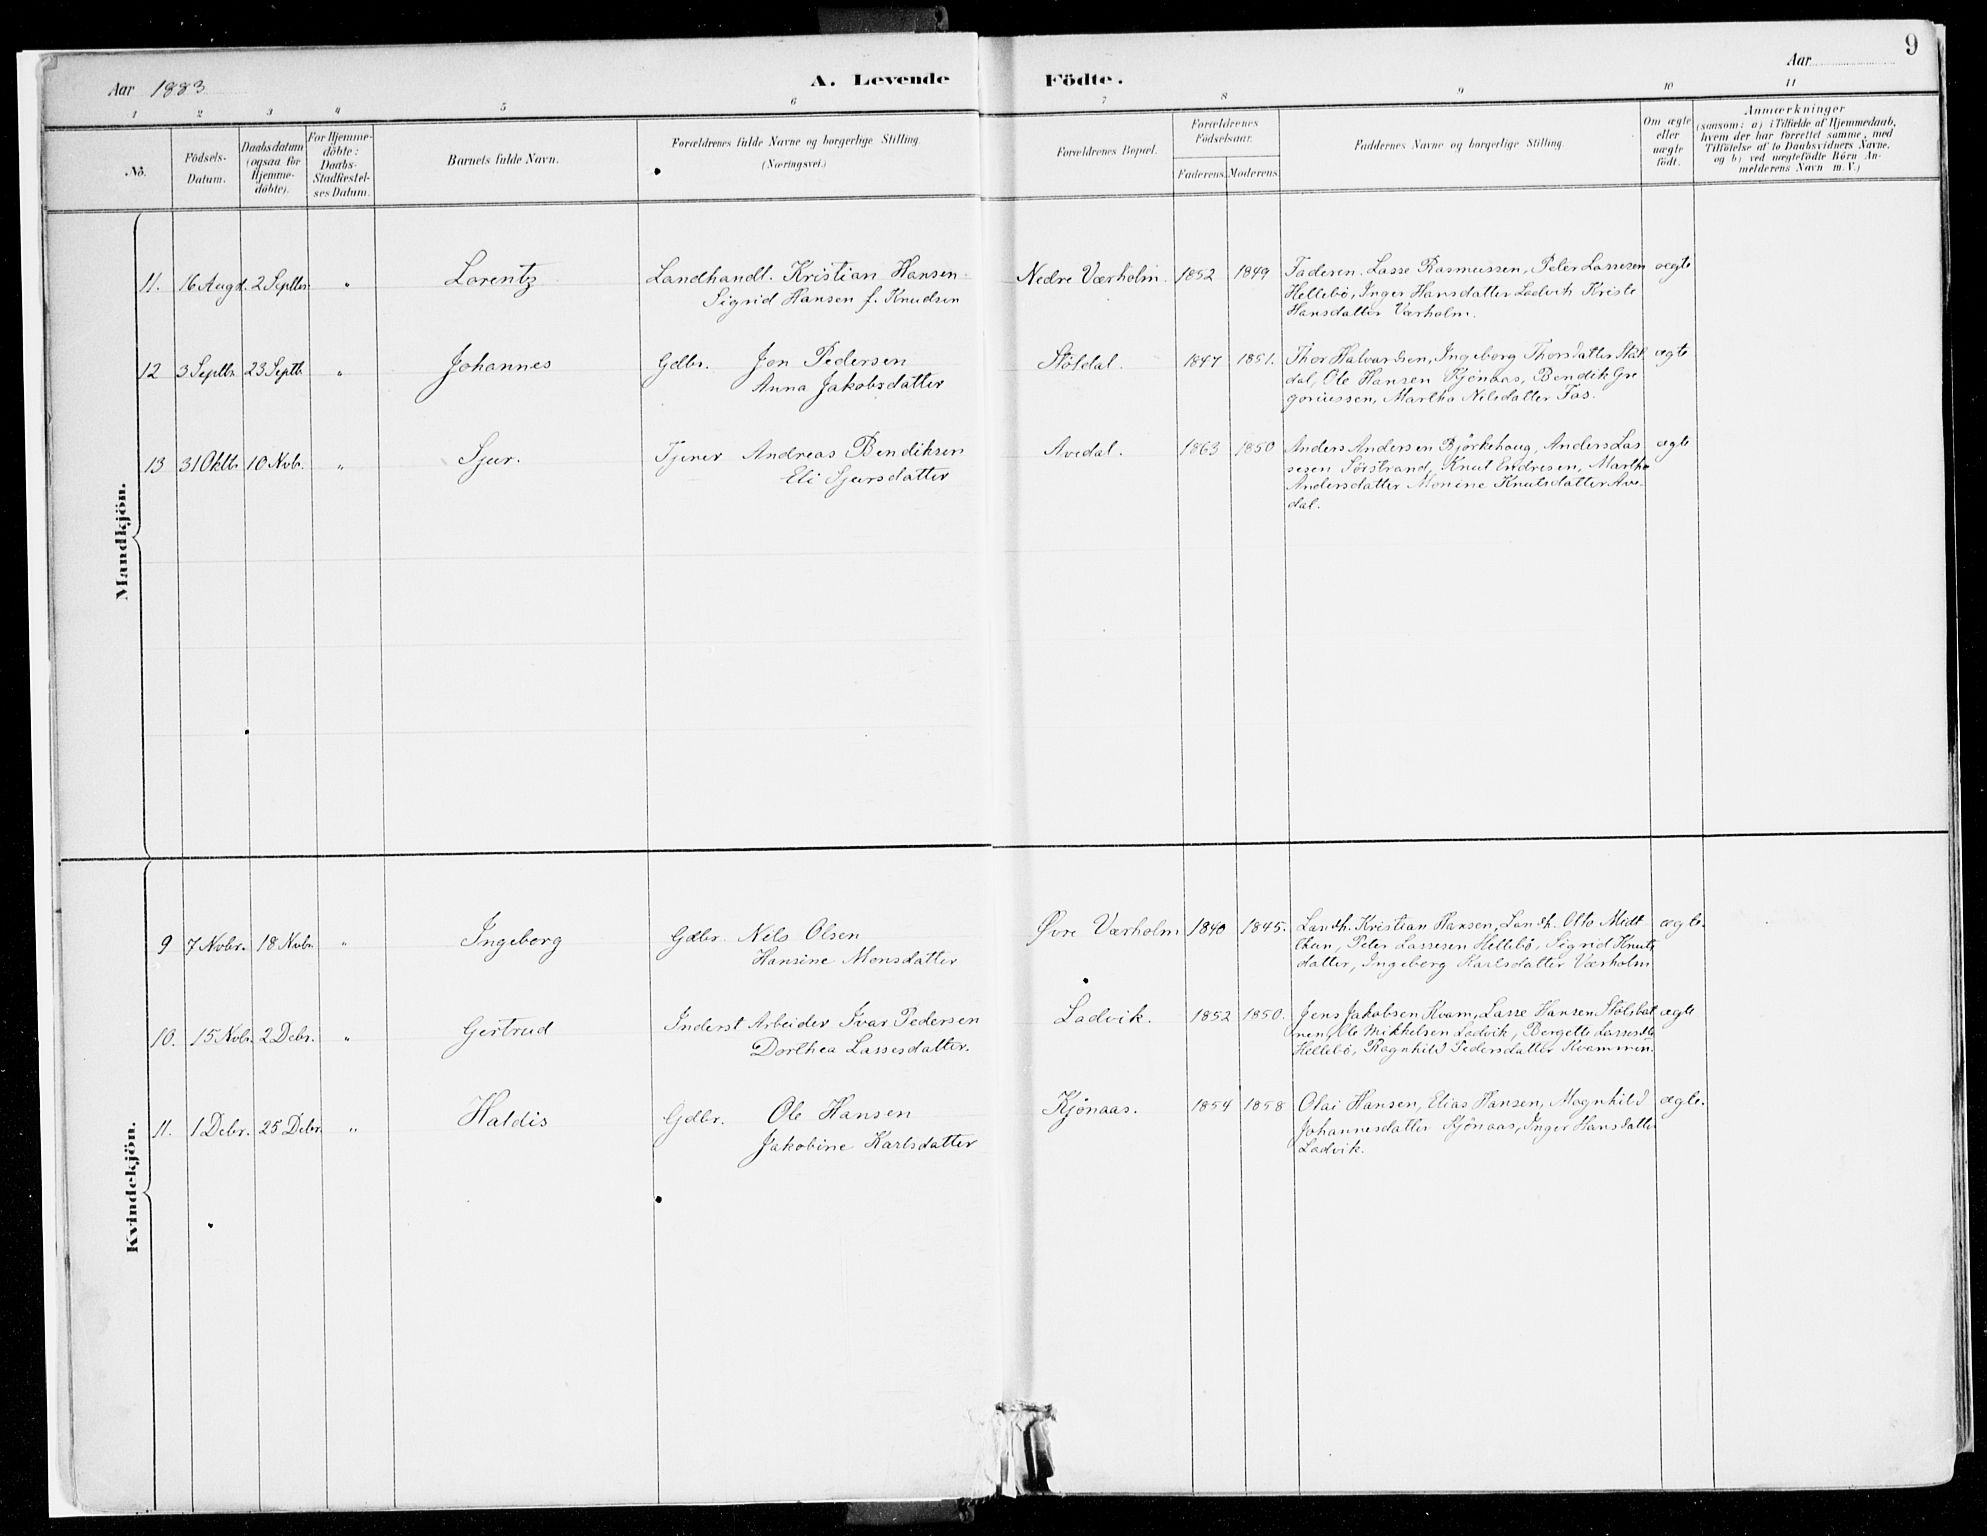 9
Aar 1883
A. Levende Födte.
Aar
1 2 3 4 5 6 7 8 9 10 11
No.
Födsels-
Datum.
Daabsdatum
(ogsaa for
Hjemme-
döbte).
For Hjemme-
döbte:
Daabs-
Stadfæstel-
ses Datum.
Barnets fulde Navn.
Forældrenes fulde Navne og borgerlige Stilling
(Næringsvei.)
Forældrenes Bopæl.
Forældrenes
Födselsaar.
Faderens. Moderens.
Faddernes Navne og borgerlige Stilling.
Om ægte
eller
uægte
födt.
Anmærkninger
(saasom: a) i Tilfælde af Hjemmedaab,
hvem der har forrettet samme, med
Tilföielse af to Daabsvidners Navne,
og b) ved uægtefödte Börn An-
melderens Navn m.V.)
Mandkjön.
11. 16 Augst. 2 Septbr. " Lorentz Landhandl. Kristian Hansen Nedre Værholm. 1852 1849 Faderen. Lasse Rasmussen, Peter Lassesen ægte
Sigrid Hansen f. Knudsen Hellebö, Inger Hansdatter Ladvik Kriste
Hansdatter Værholm.
12 3 Septbr. 23 Septb. " Johannes Gdbr. Jon Pedersen Stölsdal. 1847 1851. Thor Halvardsen, Ingeborg Thorsdatter Stöls ægte
Anna Jakobsdatter dal, Ole Hansen Kjönaas, Bendik Gre
goriussen, Martha Nilsdatter Fos.
13 31 Oktb. 10 Nvb. " Sjur. Tjener Andreas Bendiksen Avedal. 1863 1850 Anders Andersen Björkehaug, Anders Las ægte
Eli Sjursdatter sesen Sörstrand, Knut Endresen, Martha
Andersdatter Monine Knutsdatter Ave-
dal.
Kvindekjön.
9 7 Nvbr. 18 Nvb. " Ingeborg Gdbr. Nils Olsen Øvre Værholm 1840 1845. Landh. Kristian Hansen, Landh. Otto Midt ægte.
Hansine Monsdatter Peter Lassesen Hellebö, Sigrid Knuts
datter, Ingeborg Karlsdatter Værholm
10. 15 Nvb. 2 Debr. " Gertrud Inderst Arbeider Ivar Pedersen Ladvik. 1852 1850. Jens Jakobsen Kvam, Lasse Hansen ægte
Dorthea Lassesdatter. nen, Ole Mikkelsen Ladvik, Bergette
Hellebö, Ragnhild Pedersdatter Kvammen.
11. 1 Debr. 25 Debr. " Haldis Gdbr. Ole Hansen Kjönaas. 1854 1858 Olai Hansen, Elias Hansen, Magnhild ægte.
Jakobine Karlsdatter Johannesdatter Kjönaas, Inger Hansdatter
Ladvik.